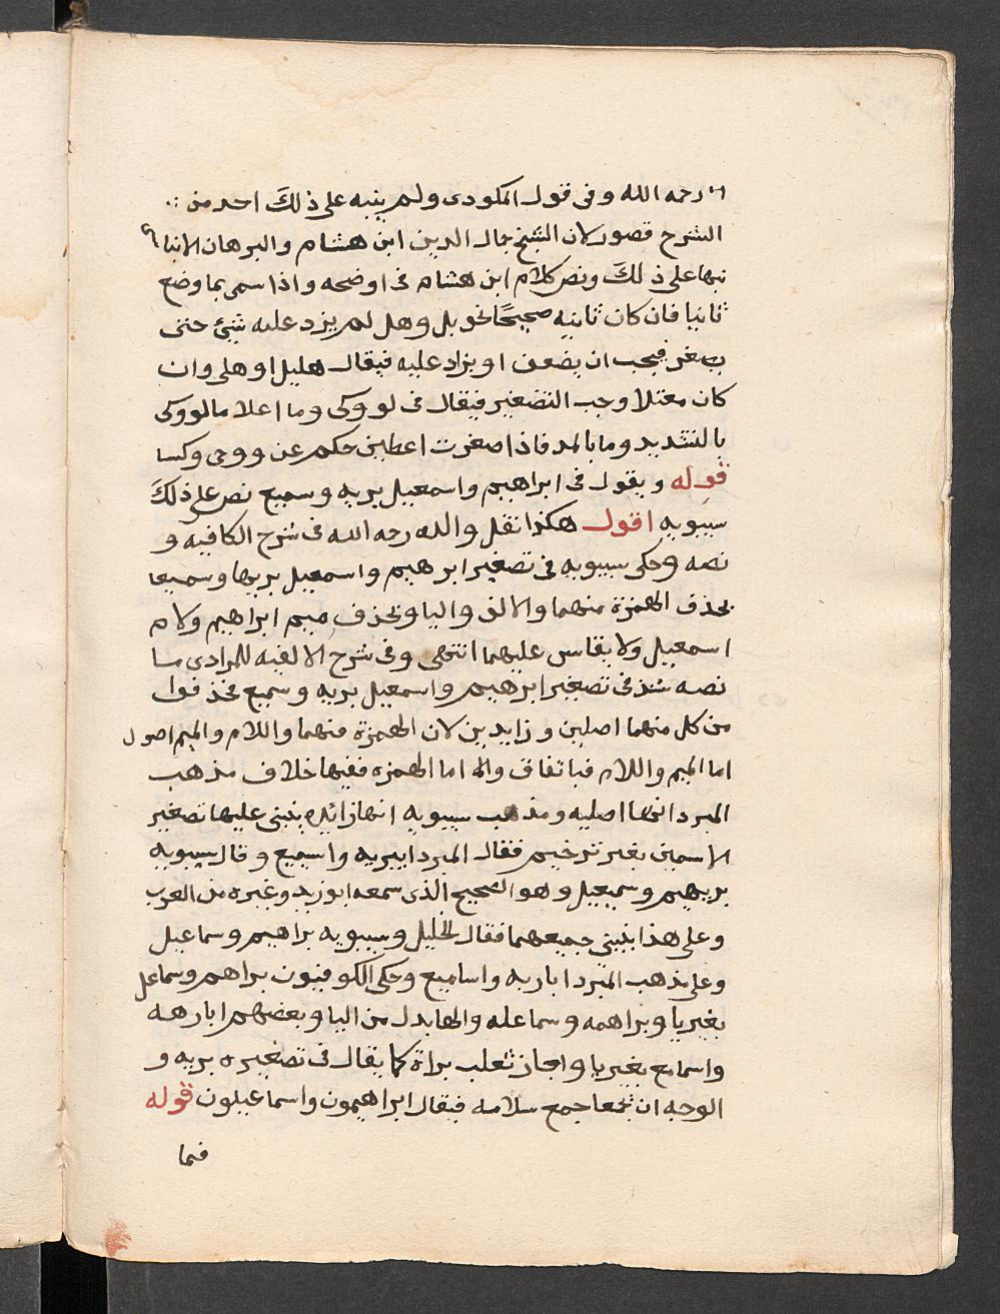 رحمه الله وفى قول المكودى ولم ينبه على ذلكَ احد من
الشرح قصور لان الشيخ جمال الدين ابن هشام والبرهان الانبا
نبها على ذلكَ ونص كلام ابن هشام فى اوضحه واذا سمى بما وضع
ثنائيا فان كان ثانيه صحيحًا نحو بل وهل لم يزد عليه شئ حتى
يصغر فيجب ان يضعف او يزاد عليه فيقال هليل او هلى وان
كان معتلا وجب التضعيف فيقال فى لو وكى وما اعلاما لو وكى
بالتشديد وما بالمد فاذا صغرت اعطين حكم عن ووحى وكسا
قوله ويقول فى ابراهيم واسمعيل بريه وسميع نص على ذلكَ
سيبويه اقول هكذا نقل والده رحه الله فى شرح الكافيه و
نصه وحكى سيبويه فى تصغير ابرهيم واسمعيل بريها وسميعا
بحذف الهمزة منهما والالف واليا وبحذف ميم ابراهيم ولام
اسمعيل ولا يقاس عليهما انتهى وفى شرح الالفيه للمرادى ما
نصه شذ فى تصغير ابرهيم واسمعيل بريه وسميع فحذفوا
من كل منهما اصلين وزايدين لان الهمزة منهما واللام والميم اصول
اما الميم واللام فباتفاق واما الهمزه ففيها خلاف مذهب
المبرد انها اصليه ومذهب سيبويه انها زائده ينبنى عليها تصغير
الاسمين بغير ترخيم فقال المبرد ابيريه واسيميع وقال سيبويه
بريهيم وسميعيل وهو الصحيح الذى سمعه ابو زيد وغيره من العرب
وعلى هذا ينبنى جميعهما فقال الخليل وسيبويه براهيم وسماعيل
وعلى مذهب المبرد اباريه واساميع وحكى الكوفيون براهم وسماعل
بغير يا وبراهمه وسماعله والها بدل من اليا وبعضهم ابارهه
واسامع بغير يا واجاز ثعلب براة كما يقال فى تصغيره بريه و
الوجه ان يجمعا جمع سلامه فيقال ابراهيمون واسماعيلون قوله
فما